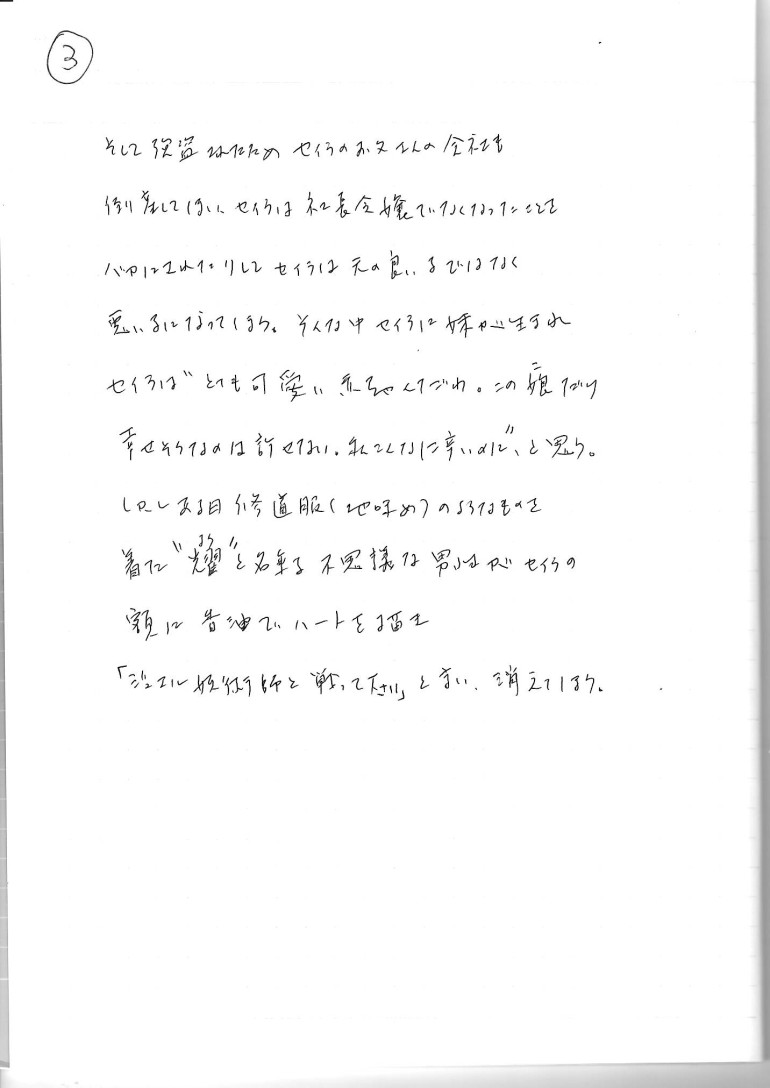 ③
そして強盗されたため セイラのお父さんの会社も
倒産してしまい、セイラは社長令嬢でなくなったことを
バカにされたりして セイラは元の良い子ではなく
悪い子になってしまう。そんな中 セイラに妹が生まれ
セイラは"とても可愛い 赤ちゃんだわ。この娘だけ
こ
幸せそうなのは許せない。私こんなに辛いのに"、と思う。
しかしある日 修道服(地味め)のようなものを
着た "耀" と名乗る 不思議な 男性が セイラの
よう
額に 香油で ハートを描き
「ジュエル妖術師と 戦って下さい」と言い、消えてしまう。